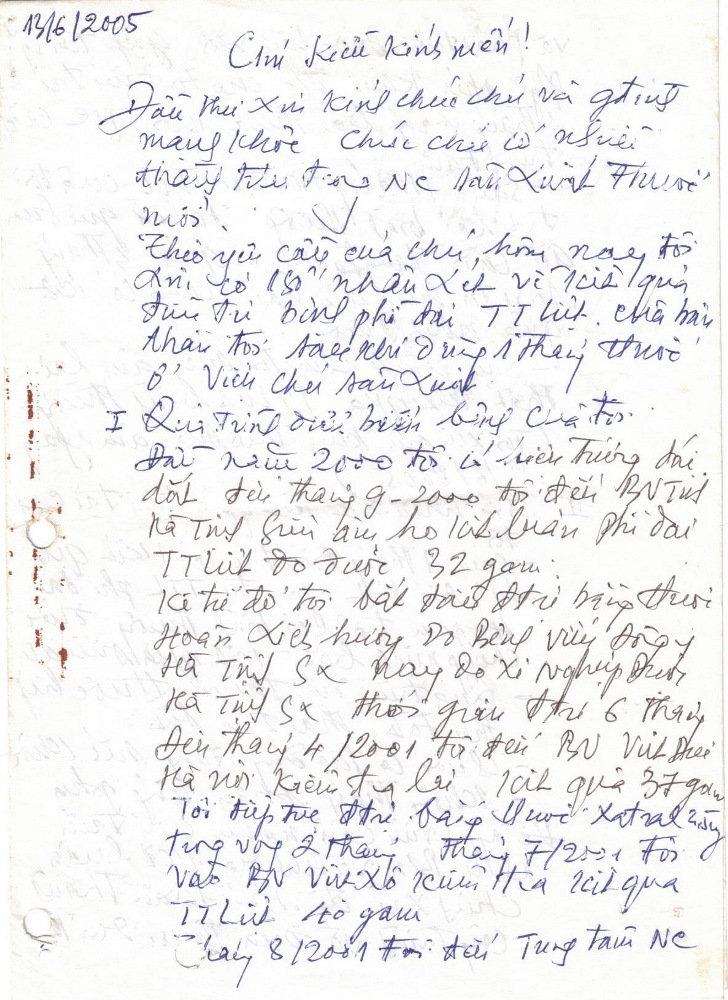 13/6/2005
Chú Kiều kính mến!
Đầu thư xin kính chúc chú và gđình
mạng khỏe chúc chú có nhiều
thắng lợi trong NC sản xuất thuốc
mới.
Theo yêu cầu của chú hôm nay tôi
xin có 1 số nhận xét về kết quả
điều trị bệnh phì đại TTLiệt của bản
thân tôi sau khi dùng 1 tháng thuốc
ở Viện chú sản xuất
I Quá trình diễn biến bệnh của tôi
Đầu năm 2000 tôi có hiện tượng đái
dắt đến tháng 9-2000 tôi đến BV Tỉnh
Hà Tĩnh siêu âm họ kết luận phì đại
TTLiệt đo được 32 gam
Kể từ đó tôi bắt đầu đtrị bằng thuốc
Hoàn Xích hương Do Bệnh viện đông y
Hà Tĩnh SX nay do Xí Nghiệp Dược
Hà Tĩnh SX thời gian đtrị 6 tháng
Đến tháng 4/2001 tôi đến BV Việt Đức
Hà Nội kiểm tra lại kết quả 37 gam
Tôi tiếp tục đtrị bằng thuốc Xatral
trong vòng 2 tháng tháng 7/2001 tôi
vào BV Việt Xô kiểm tra kết quả
TTLiệt 40 gam
tháng 8/2001 tôi đến Trung tâm NC